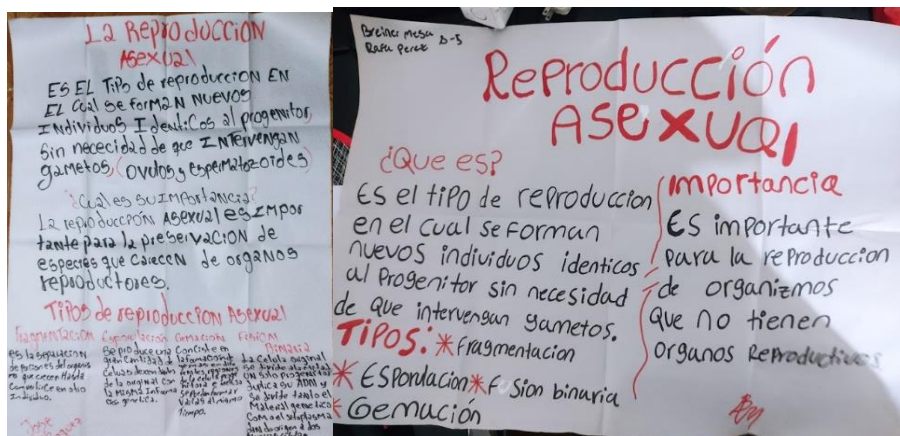 La Reproduccion
Asexual
Es El Tipo de reproduccion EN
EL Cual se forman nuevos
Individuos Identicos al progenitor,
Sin nececidad de que Intervengan
gametos, (ovulos y espermatozoides)
¿Cual es su importancia?
La reproducción Asexual es Impor
tante para la preservacion de
especies que carecen de organos
reproductores.
Tipos de reproduccion Asexual
Fragmentacion
es la separacion
de porciones del organis
mo que crecen Hasta
convertirse en otro
Individuo.
Esporulacion
se produce una
gran Cantidad de
Celulas
de la original con
la misma Informa
cion genetica.
Gemacion
Consiste en
la formacion
varias al mismo
Tiempo.
Binaria
La Celula original
se divide
un solo progenitor
duplica su ADN y
se divide tanto el
Material genetico
Como el citoplasma
dando origen a dos
Jose
Breiner Mesa 8-5
Rafa Perez
Reproducción
Asexual
¿Que es?
Es el tipo de reproduccion
en el cual se forman
nuevos individuos identicos
al Progenitor sin necesidad
de que intervengan gametos.
Tipos: *Fragmentacion
*Esporulacion *Fusion binaria
*Gemución
Importancia
Es importante
para la reproduccion
de organizmos
que no tienen
organos Reproductivos